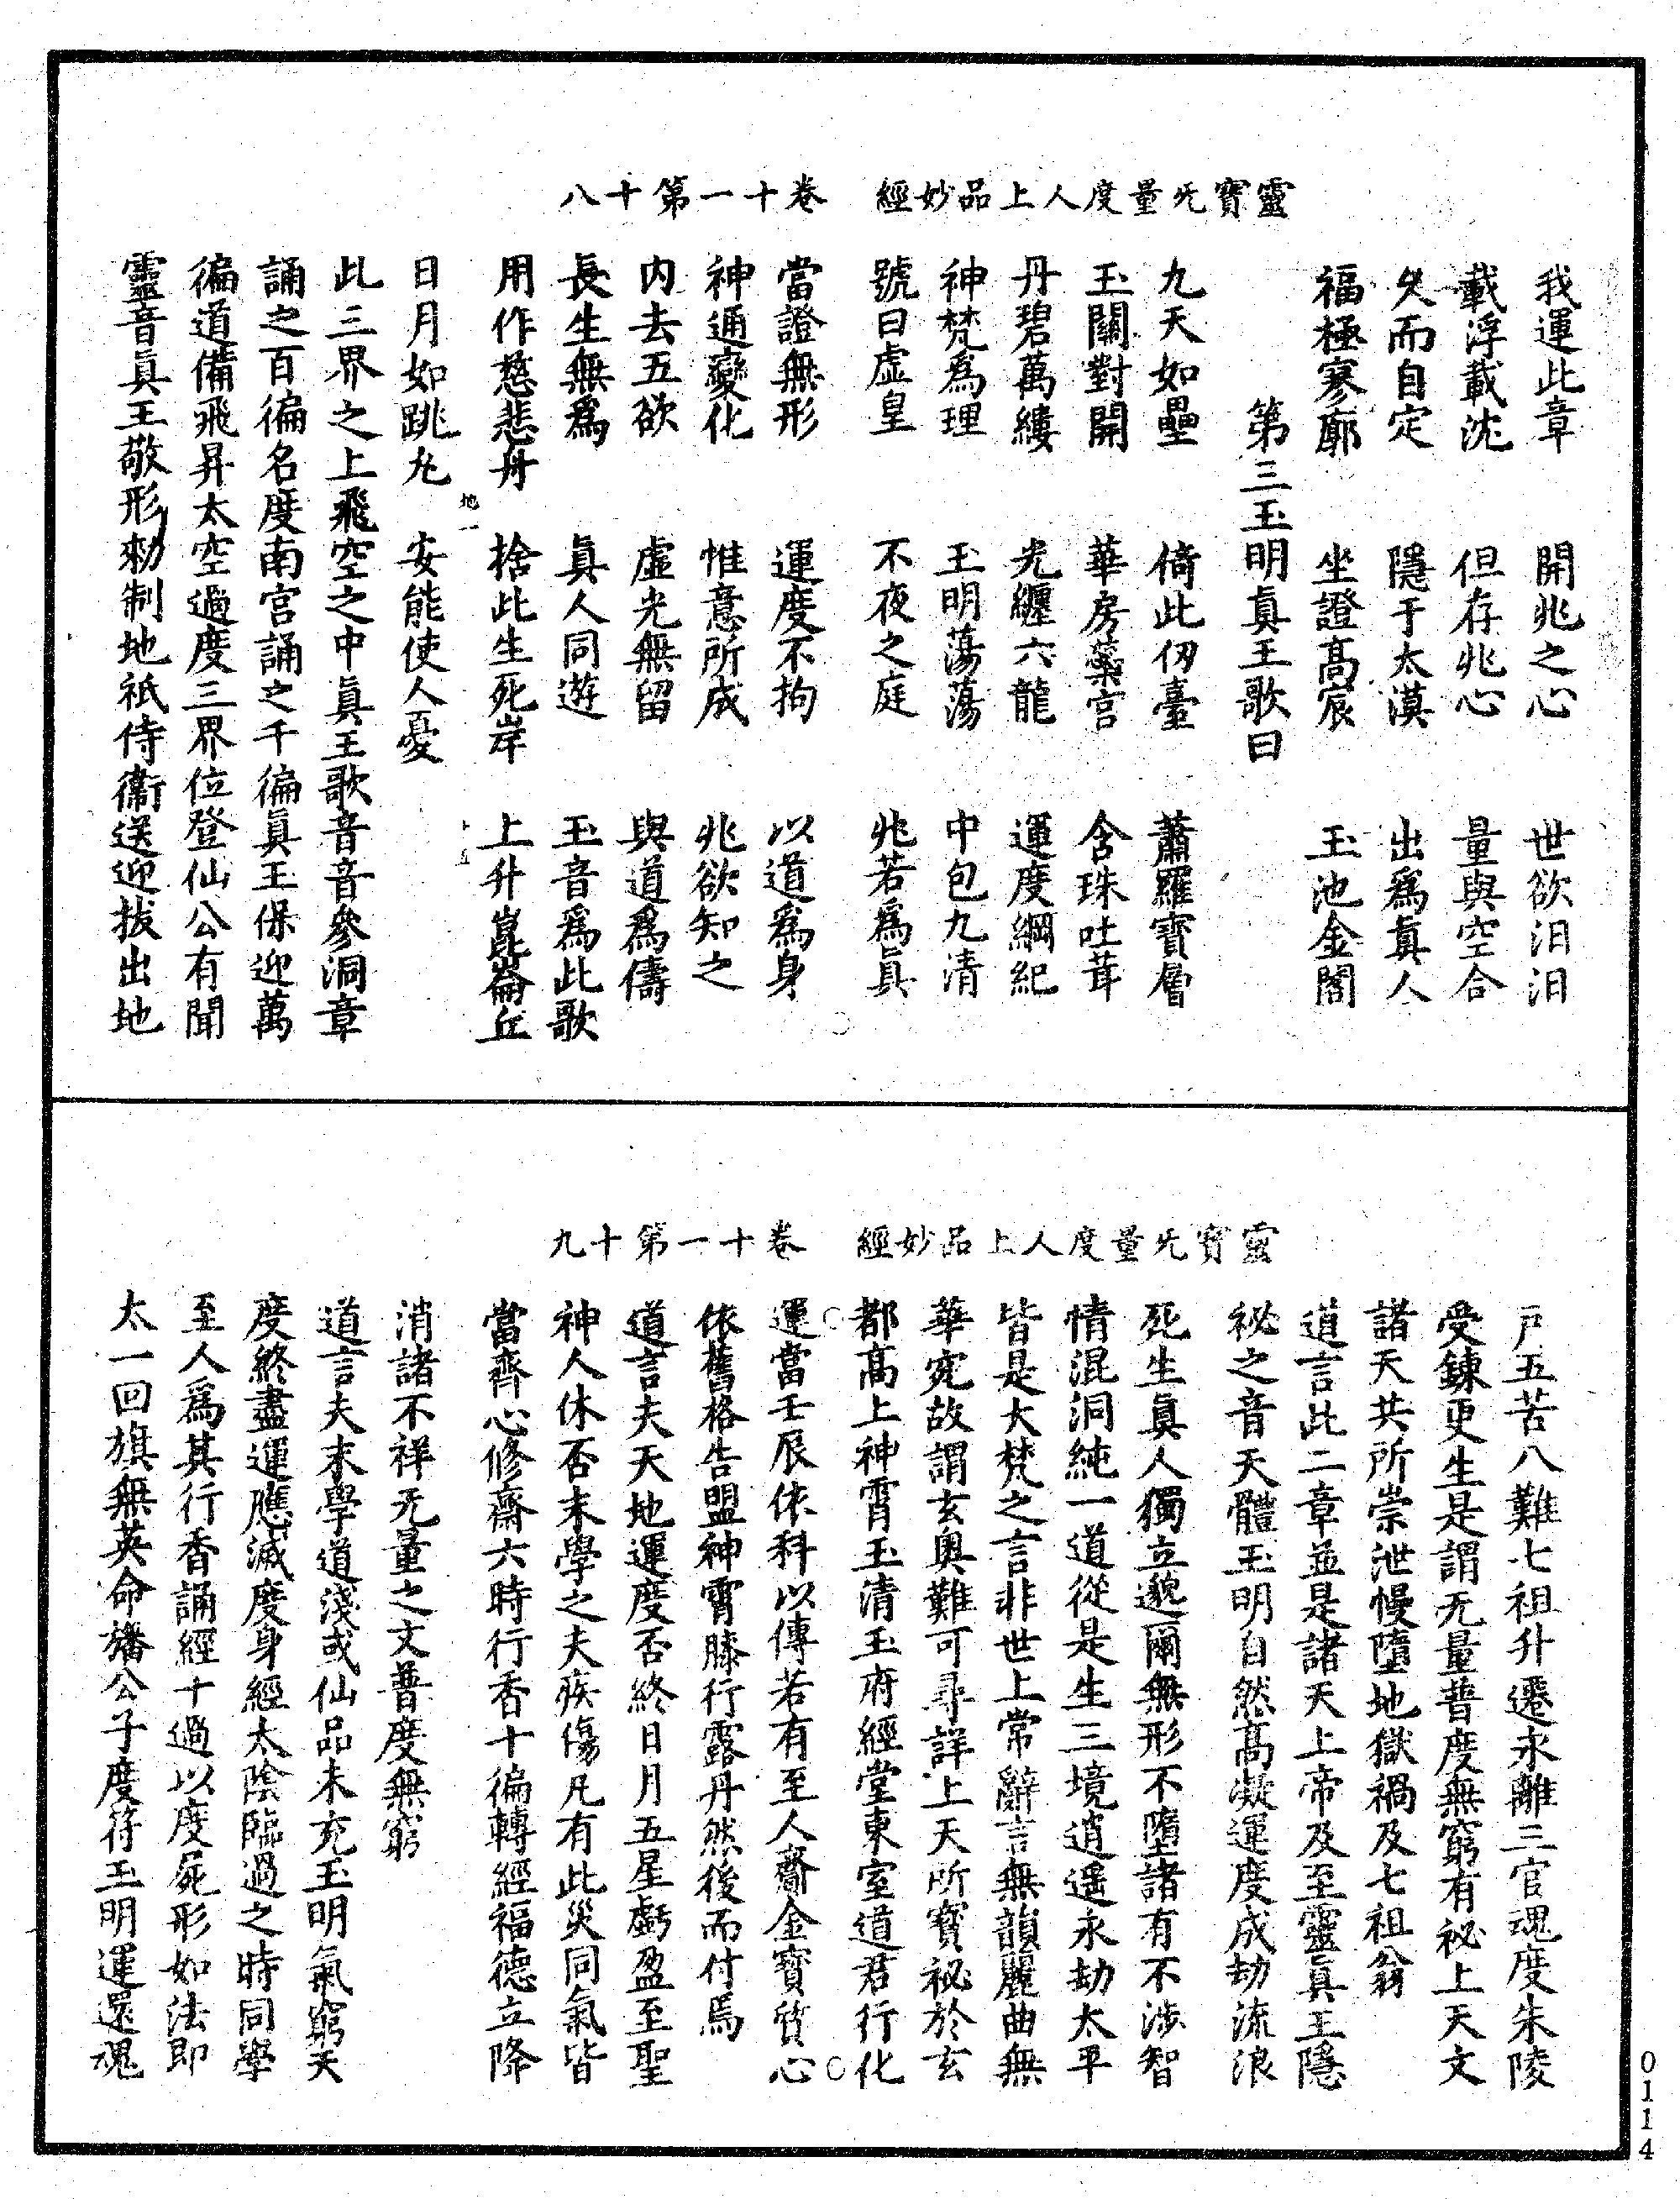 靈寶无量度人上品妙經　卷十一第十八
我運此章　開兆之心　世欲汨汨
載浮載沈　但存兆心　量與空合
久而自定　隱于太漠　出爲眞人
福極寥廓　坐證高宸　玉池金閣
第三玉明眞王歌曰
九天如壘　倚此仞臺　蕭羅寶層
玉關對開　華房蘂宫　含珠吐茸
丹碧萬縷　光纏六龍　運度綱紀
神梵爲理　玉明蕩蕩　中包九清
號曰虚皇　不夜之庭　兆若爲具
當證無形　運度不拘　以道爲身
神通變化　惟意所成　兆欲知之
内去五欲　虚光無留　與道爲儔
長生無爲　眞人同遊　玉音爲此歌
用作慈悲舟　捨此生死岸　上升崑崙丘
地一　十五
日月如跳丸　安能使人憂
此三界之上飛空之中眞王歌音音參洞章
誦之百徧名度南宫誦之千徧眞王保迎萬
徧道備飛昇太空過度三界位登仙公有聞
靈音眞王敬形勑制地祇侍衞送迎拔出地
靈寶无量度人上品妙經　卷十一第十九
戸五苦八難七祖升遷永離三官魂度朱陵
受鍊更生是謂无量普度無窮有祕上天文
諸天共所崇泄慢墮地獄禍及七祖翁
道言此二章並是諸天上帝及至靈眞王隱
祕之音天體玉明自然高凝運度成劫流浪
死生眞人獨立邈爾無形不墮諸有不涉智
情混洞純一道從是生三境逍遥永劫太平
皆是大梵之言非世上常辭言無韻麗曲無
華宛故謂玄奥難可尋詳上天所寶祕於玄
都高上神霄玉清玉府經堂東室道君行化
運當壬辰依科以傳若有至人齎金寶質心
依舊格告盟神霄膝行露丹然後而付焉
道言夫天地運度否終日月五星虧盈至聖
神人休否末學之夫疾傷凡有此災同氣皆
當齊心修齋六時行香十徧轉經福德立降
消諸不祥无量之文普度無窮
道言夫末學道淺或仙品未充玉明氣窮天
度終盡運應滅度身經太陰臨過之時同學
至人爲其行香誦經十過以度屍形如法即
太一回旗無英命旛公子度符玉明運還魂
0114